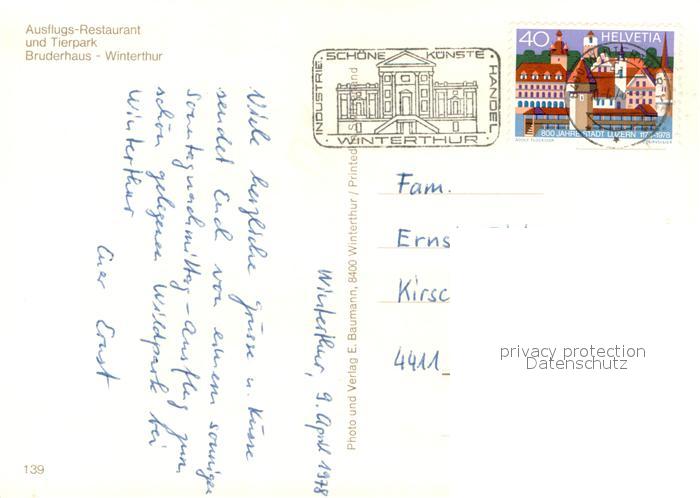 Ausflugs-Restaurant
und Tierpark
Bruderhaus - Winterthur
Winterthur, 9. April 1978
Viele herzliche Grüsse u. Küsse
sendet Euch von einem sonnigen
Sonntagnachmittag-Ausflug zum
schön gelegenen Wildpark bei
Winterthur
Euer Ernst
139
Photo und Verlag E. Baumann, 8400 Winterthur / Printed in Switzerland
INDUSTRIE · SCHÖNE KÜNSTE · HANDEL ·
WINTERTHUR
40 HELVETIA
800 JAHRE STADT LUZERN 1178-1978
Fam.
Erns
Kirsc
4411
privacy protection
Datenschutz